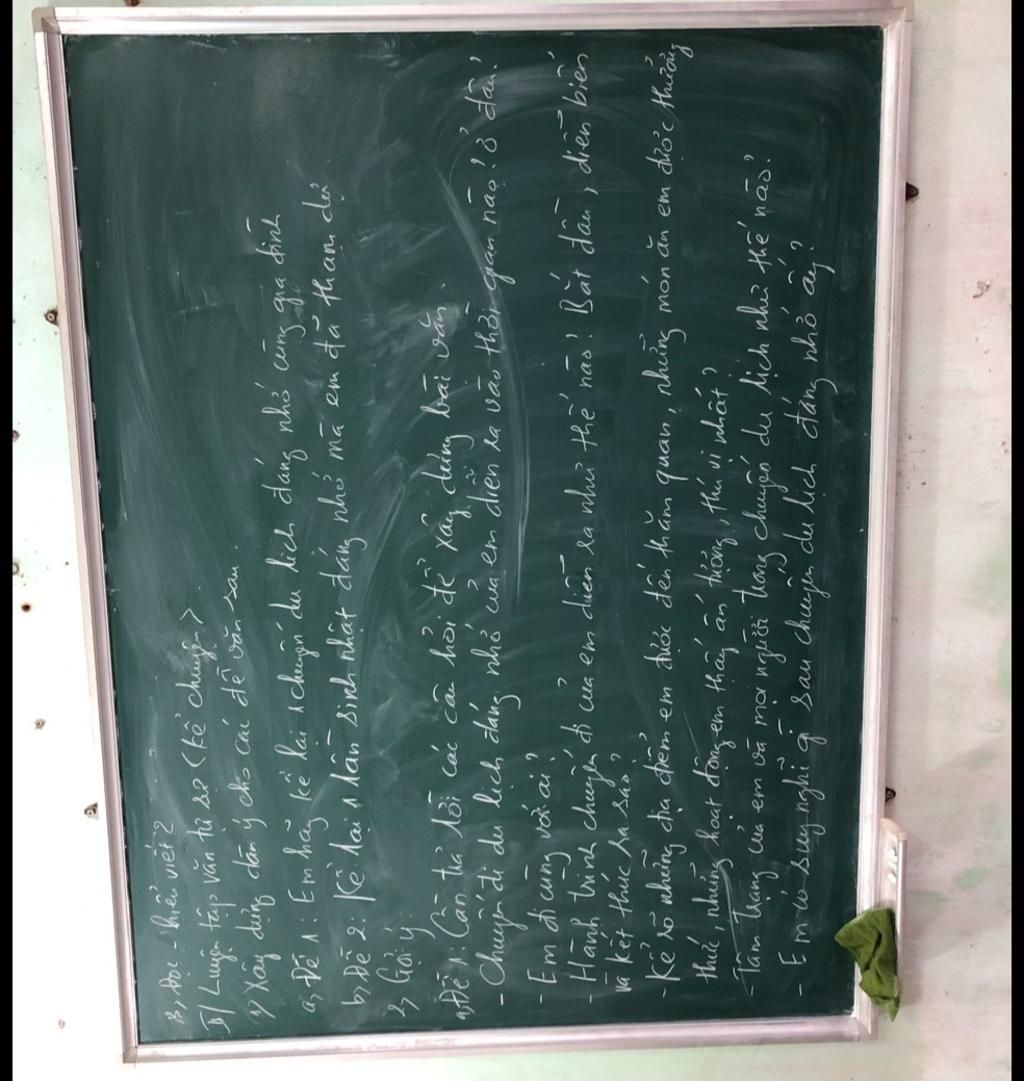 3, Đọc - hiểu viết 2
I) Luyện tập văn tự sự (kể chuyện)
1) Xây dựng dàn ý cho các đề văn sau.
a, Đề 1: Em hãy kể lại 1 chuyến du lịch đáng nhớ cùng gia đình
b, Đề 2: Kể lại 1 lần sinh nhật đáng nhớ mà em đã tham dự
2, Gợi ý
a, Đề 1: Cần trả lời các câu hỏi để xây dựng bài văn.
- Chuyến đi du lịch đáng nhớ của em diễn ra vào thời gian nào? ở đâu?
- Em đi cùng với ai?
- Hành trình chuyến đi của em diễn ra như thế nào? Bắt đầu, diễn biến
và kết thúc ra sao?
- Kể rõ những địa điểm em được đến thăm quan, những món ăn em được thưởng
thức, những hoạt động em thấy ấn tượng, thú vị nhất?
- Tâm trạng của em và mọi người trong chuyến du lịch như thế nào?
- Em có suy nghĩ gì sau chuyến du lịch đáng nhớ ấy?